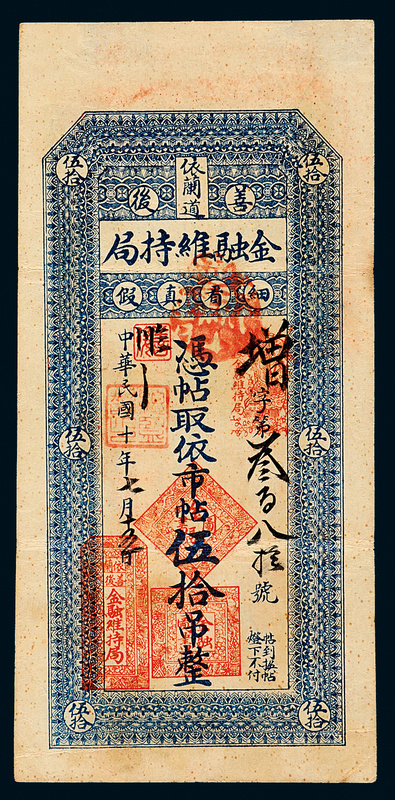 伍拾
伍拾
依蘭道
善後
金融維持局
細看真假
增字第叁百八拾號
憑帖取依市帖伍拾吊整
中華民國十年七月十五日
帖到換帖
燈下不付
伍拾
伍拾
金融維持局
伍拾
伍拾